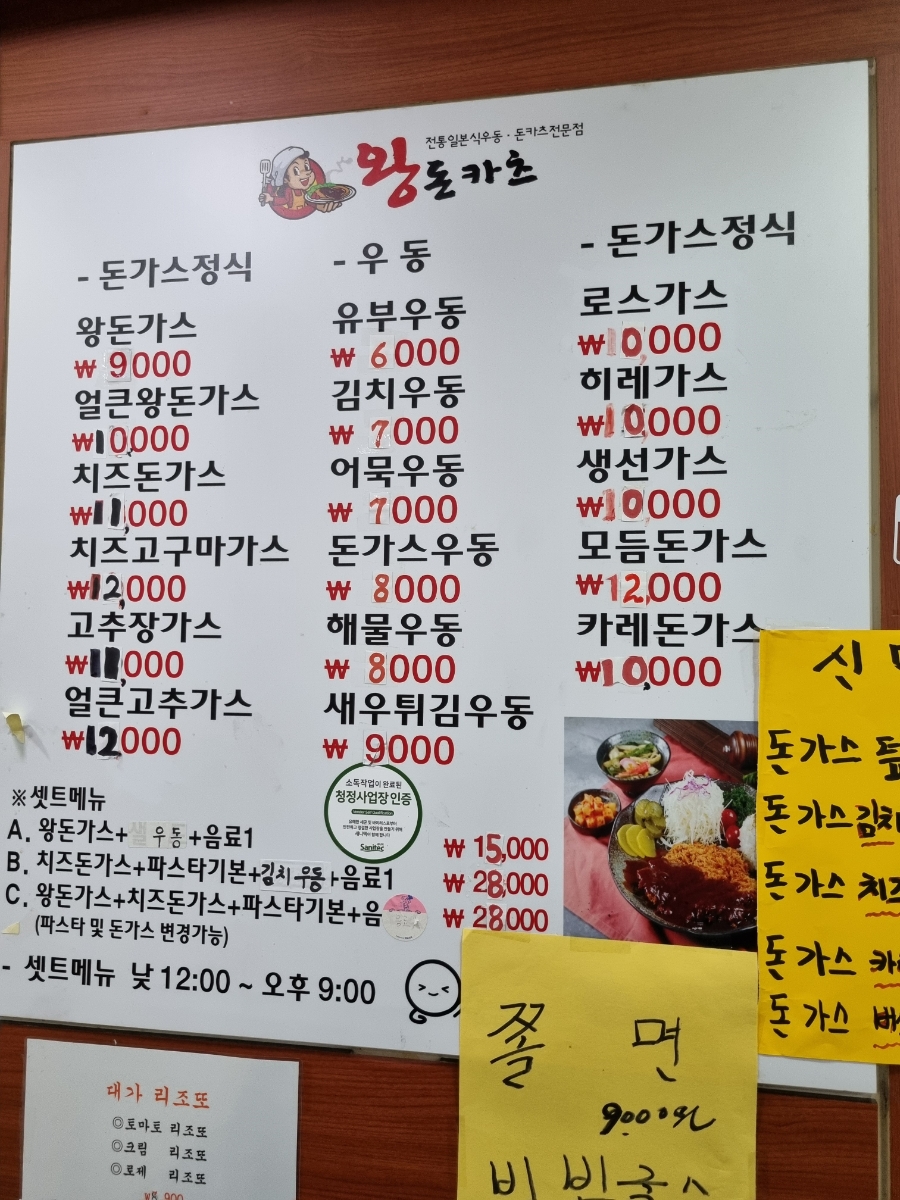 전통일본식우동 · 돈카츠전문점
왕돈카츠
- 돈가스정식
왕돈가스
₩ 9000
얼큰왕돈가스
₩10,000
치즈돈가스
₩11,000
치즈고구마가스
₩12,000
고추장가스
₩11,000
얼큰고추가스
₩12000
- 우 동
유부우동
₩ 6000
김치우동
₩ 7000
어묵우동
₩ 7000
돈가스우동
₩ 8000
해물우동
₩ 8000
새우튀김우동
₩ 9000
- 돈가스정식
로스가스
₩10,000
히레가스
₩10,000
생선가스
₩10000
모듬돈가스
₩12,000
카레돈가스
₩10,000
소독작업이 완료된
청정사업장 인증
Sanitec
※셋트메뉴
A. 왕돈가스+우동+음료1 ₩ 15,000
B. 치즈돈가스+파스타기본+김치우동+음료1 ₩ 28,000
C. 왕돈가스+치즈돈가스+파스타기본+음 ₩ 28,000
(파스타 및 돈가스 변경가능)
- 셋트메뉴 낮 12:00 ~ 오후 9:00
신
돈가스
돈가스김치
돈가스 치즈
돈가스
돈가스
쫄 면
9000원
대가 리조또
◎토마토 리조또
◎크림 리조또
◎로제 리조또
₩8,900